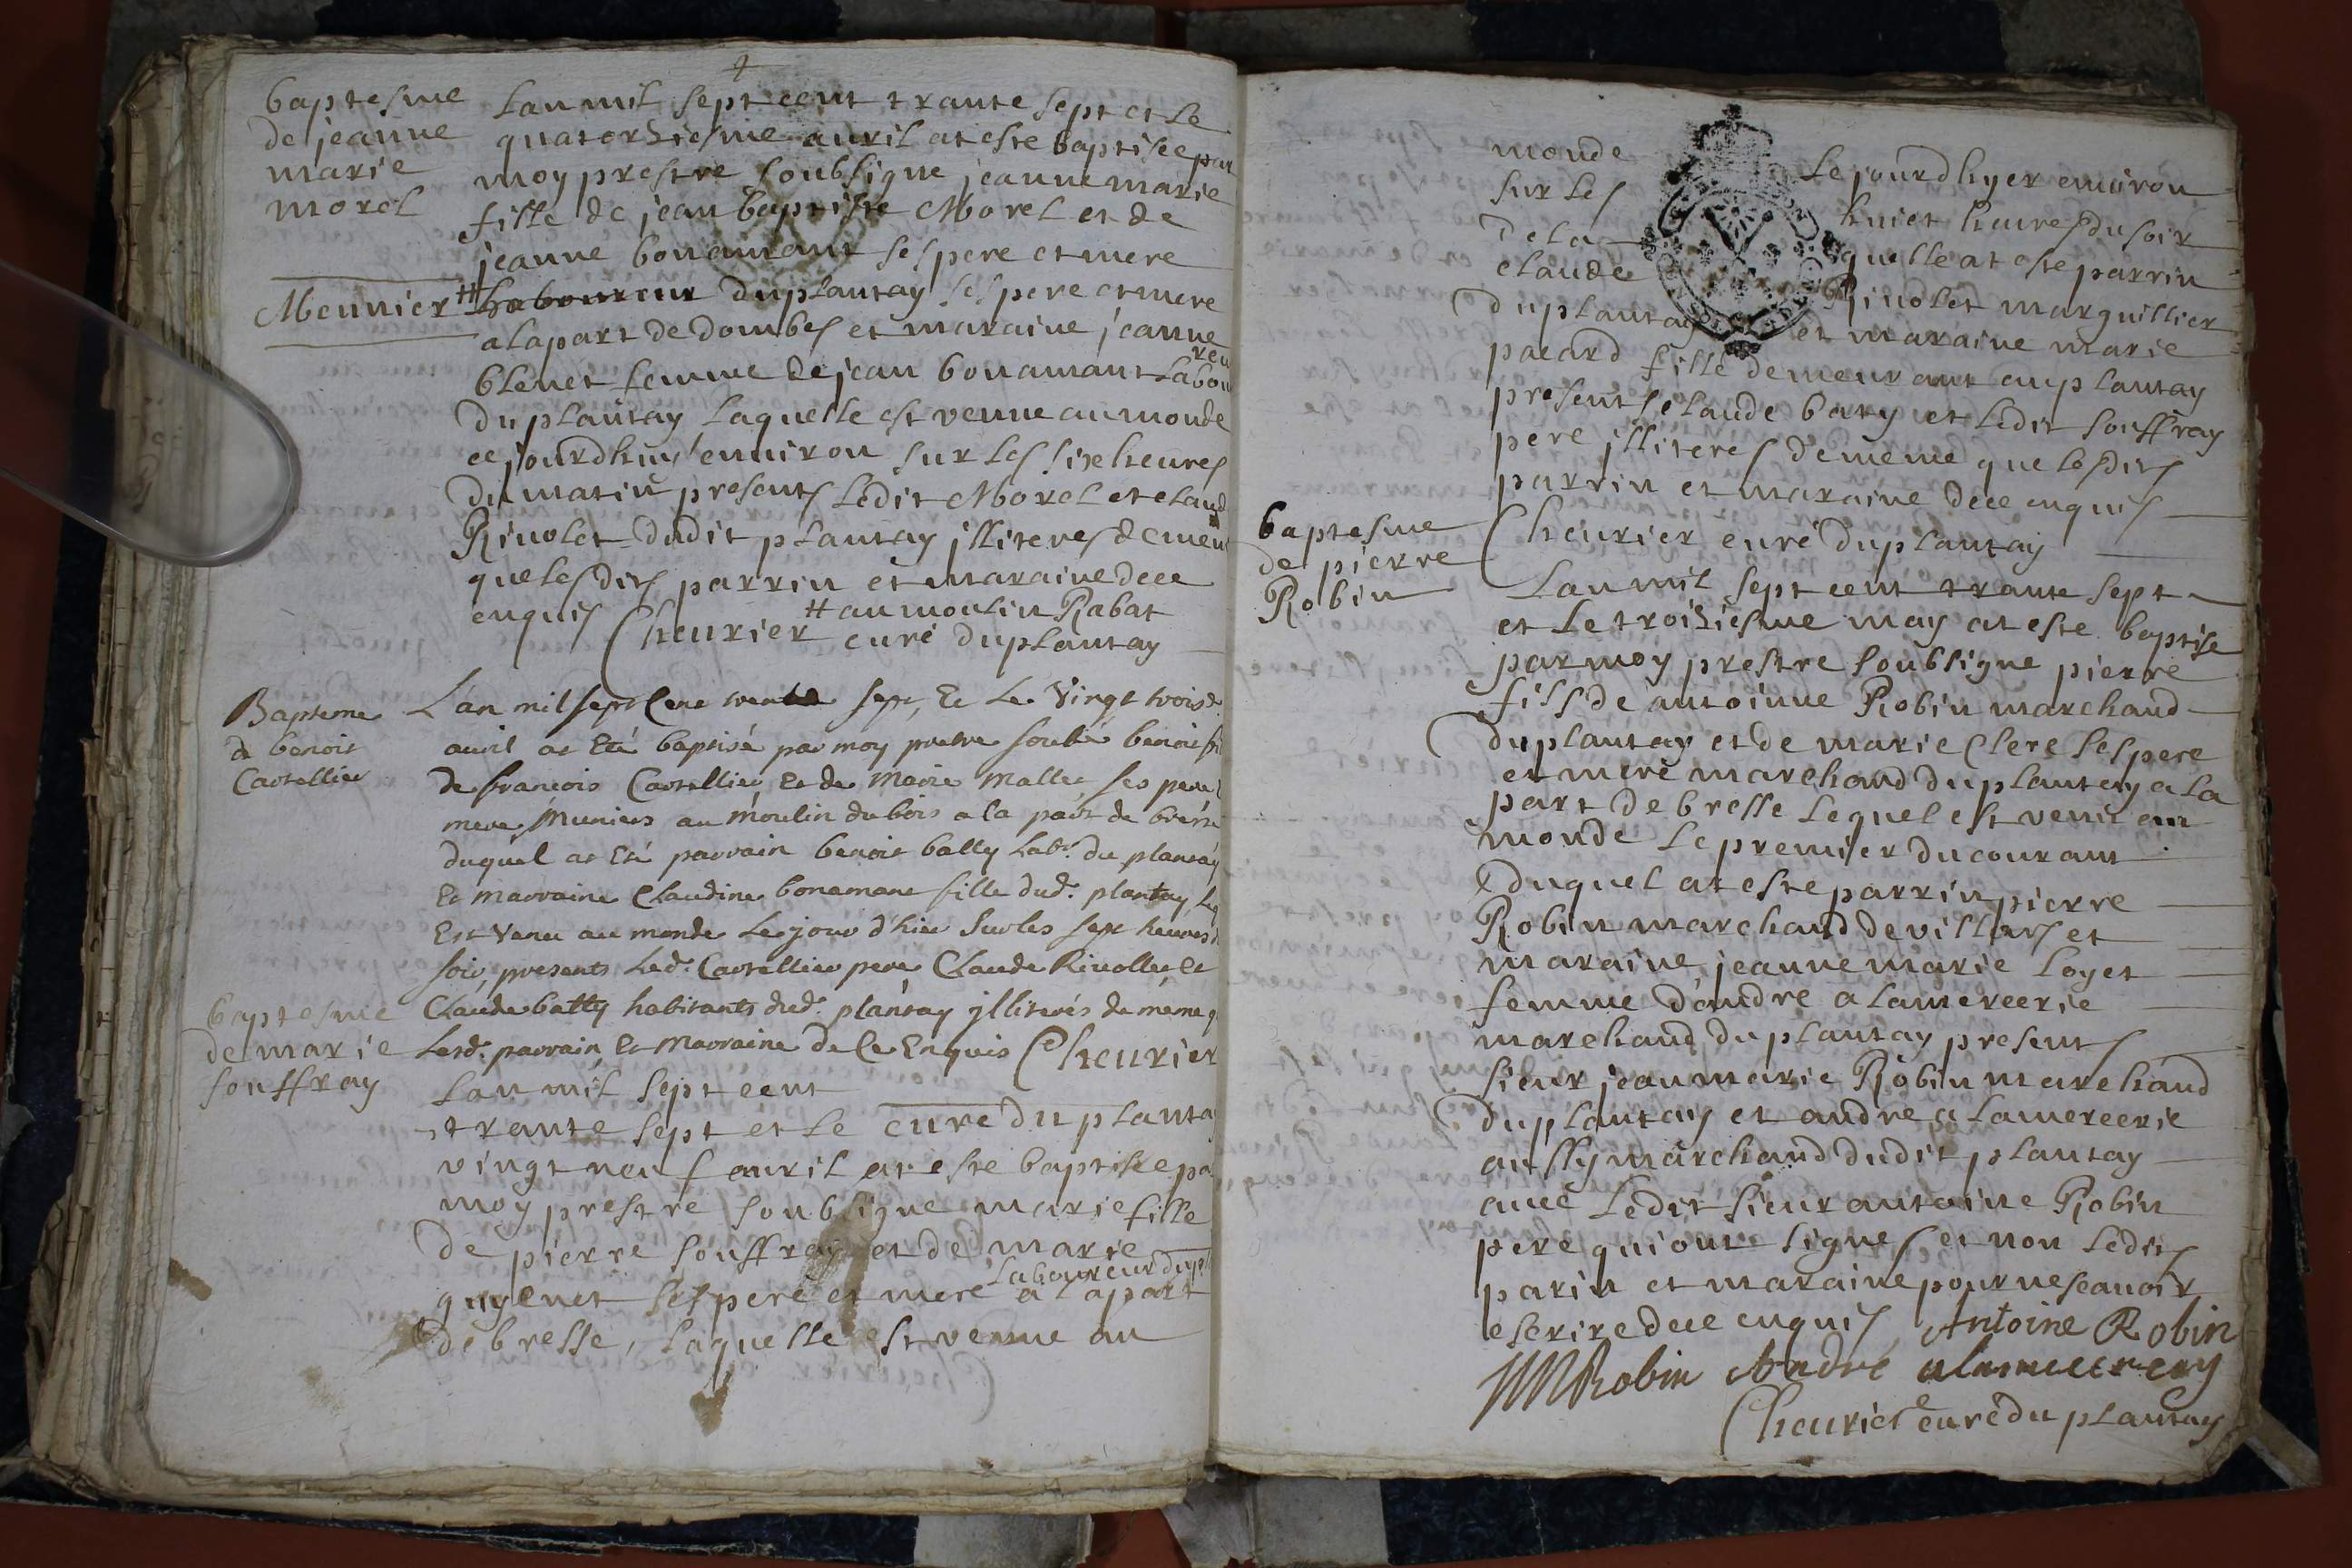 baptesme
de jeanne
marie
morel
Lan mil sept cent trante sept et le
quatorziesme auril at este baptisée par
moy prestre soubsigne jeanne marie
fille de jean baptiste Morel et de
jeanne bonamant ses pere et mere
Meunier # laboureur du plantay ses pere et mere
a la part de dombes et maraine jeanne
blenet femme de jean bonamant labou
reu
du plantay laquelle est venue au monde
ce jourdhuy enuiron sur les sixe heures
du matin presents ledit Morel et claud
Riuolet dudit plantay jlliteres de mem
que lesdits parrin et maraine de ce
enquis # au moulin Rabat
Cheurier curé du plantay
Bapteme
de benoit
Cartellier
L'an mil sept Cent trente sept, Et Le Vingt trois.e
auril at Eté baptisé par moy pretre soubé. benoit fi
de francois Cartellier, Et de Marie Mallet ses pere
mere Muniers au Moulin du bois a la part de bresse
duquel at Eté parrain benoit batty Labr. du plantay
Et marraine Claudine bonamant fille dud. plantay Leq
Est Venu au monde Le jour d'hier Sur les sept heures d
soir, presents Led. Cartellier pere Claude Riuollet Et
Claude batty habitants dud. plantay jlliterés de méme q
Lesd. parrain Et Marraine de Ce Enquis Cheurier
curé du planta
baptesme
de marie
souffray
Lan mil sept cent
trante sept et le
vingt neuf auril at este baptisée pa
moy prestre soubsigne marie fille
de pierre souffray et de marie
laboureur dupl
guyenet ses pere et mere a la part
de bresse, laquelle est venue au
monde Le jourd hyer enuiron
sur les huict heures du soir
de la quelle at este parrin
claude Riuolet marguillier
du plantay et maraine marie
pacard fille demeurant au plantay
presents claude baty et ledit souffray
pere jlliteres de meme que lesdits
parrin et maraine de ce enquis
Cheurier curé du plantay
baptesme
de pierre
Robin
Lan mil sept cent trante sept
et le troiziesme may at este baptise
par moy prestre soubsigne pierre
fils de antoinne Robin marchand
du plantay et de marie Clere ses pere
et mere marchand du plantay a la
part de bresse lequel est venu au
monde le premier du courant
duquel at este parrin pierre
Robin marchand de villars et
maraine jeanne marie loyet
femme d'andre a lamercerie
marchand du plantay presents
sieur jean marie Robin marchand
du plantay et andre a lamercerie
aussy marchand dudit plantay
auec ledit sieur antoine Robin
pere qui ont signes et non ledits
parin et maraine pour ne scauoir
escrire de ce enquis Antoine Robin
JM Robin Andre alamercery
Cheurier curé du plantay